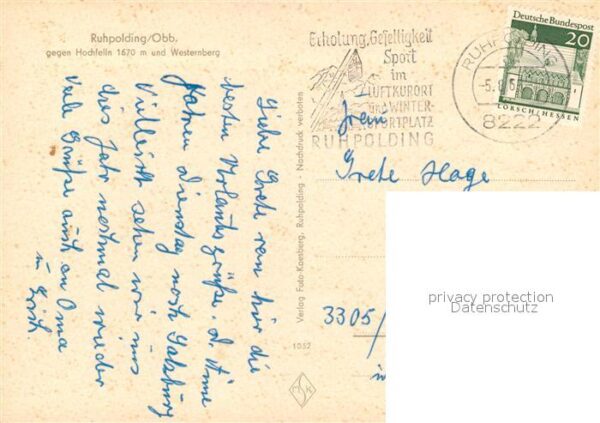 Ruhpolding/Obb.
gegen Hochfelln 1670 m und Westernberg
Liebe Grete von hier die
besten Urlaubsgrüße.
fahren Dienstag nach Salzburg
Vielleicht sehen wir uns
dies Jahr nochmal wieder
viele Grüße auch an Oma
u.
Verlag Foto Kaesberg, Ruhpolding - Nachdruck verboten
1052
Erholung, Geselligkeit
Sport
im
LUFTKURORT
UND WINTER-
SPORTPLATZ
RUHPOLDING
RUHPOLDING
8222
Deutsche Bundespost
20
LORSCH/HESSEN
Grete Hage
3305/
privacy protection
Datenschutz